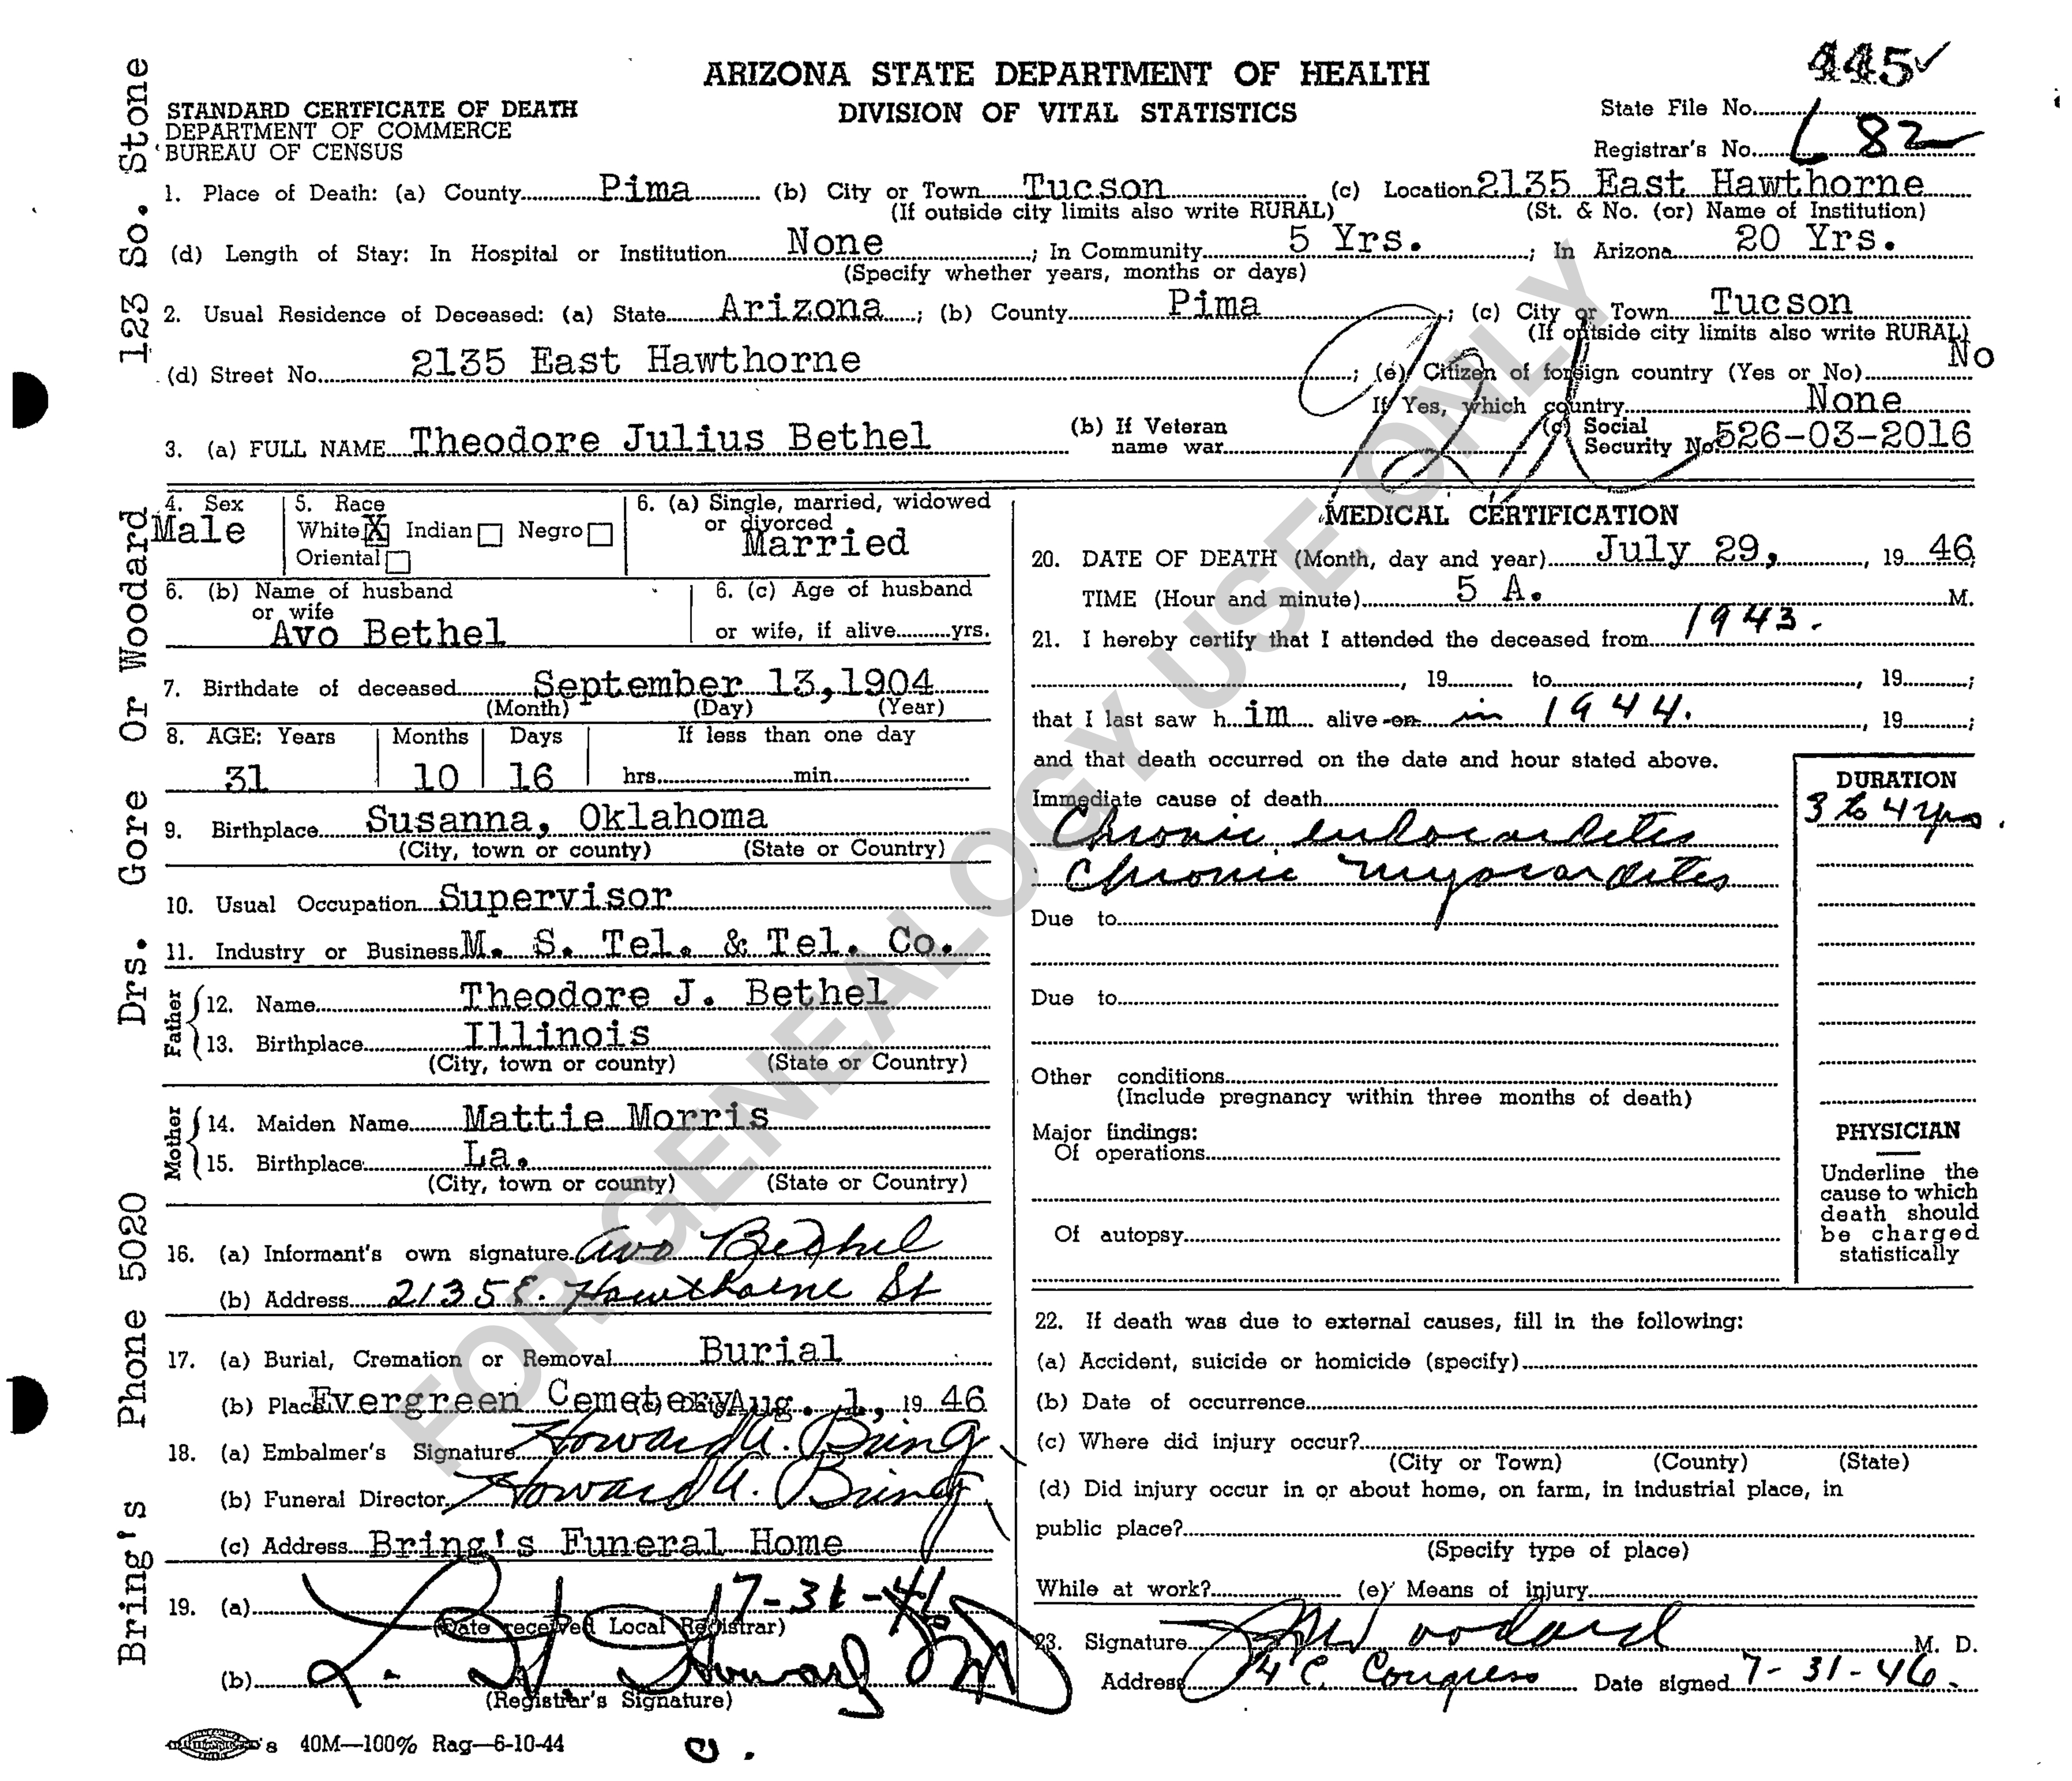 ARIZONA STATE DEPARTMENT OF HEALTH
DIVISION OF VITAL STATISTICS
STANDARD CERTFICATE OF DEATH
DEPARTMENT OF COMMERCE
BUREAU OF CENSUS
445✓
State File No.
Registrar's No. 82
1. Place of Death: (a) County Pima (b) City or Town Tucson (c) Location 2135 East Hawthorne
(If outside city limits also write RURAL) (St. & No. (or) Name of Institution)
(d) Length of Stay: In Hospital or Institution None ; In Community 5 Yrs. ; In Arizona 20 Yrs.
(Specify whether years, months or days)
2. Usual Residence of Deceased: (a) State Arizona ; (b) County Pima ; (c) City or Town Tucson
(If outside city limits also write RURAL)
(d) Street No. 2135 East Hawthorne ; (e) Citizen of foreign country (Yes or No) No
If Yes, which country None
3. (a) FULL NAME Theodore Julius Bethel (b) If Veteran name war (c) Social Security No. 526-03-2016
4. Sex Male
5. Race
White X Indian Negro
Oriental
6. (a) Single, married, widowed
or divorced
Married
6. (b) Name of husband
or wife
Avo Bethel
6. (c) Age of husband
or wife, if alive yrs.
7. Birthdate of deceased September 13, 1904
(Month) (Day) (Year)
8. AGE: Years Months Days If less than one day
31 10 16 hrs. min.
9. Birthplace Susanna, Oklahoma
(City, town or county) (State or Country)
10. Usual Occupation Supervisor
11. Industry or Business M. S. Tel. & Tel. Co.
Father
12. Name Theodore J. Bethel
13. Birthplace Illinois
(City, town or county) (State or Country)
Mother
14. Maiden Name Mattie Morris
15. Birthplace La.
(City, town or county) (State or Country)
16. (a) Informant's own signature Avo Bethel
(b) Address 2135 E. Hawthorne St
17. (a) Burial, Cremation or Removal Burial
(b) Place Evergreen Cemetery (c) Date Aug. 1, 19 46
18. (a) Embalmer's Signature Howard A. Bring
(b) Funeral Director Howard A. Bring
(c) Address Bring's Funeral Home
19. (a) 7-31-46
(Date received Local Registrar)
(b) L. H. Howard MD
(Registrar's Signature)
40M—100% Rag—6-10-44
MEDICAL CERTIFICATION
20. DATE OF DEATH (Month, day and year) July 29, , 19 46
TIME (Hour and minute) 5 A. M.
21. I hereby certify that I attended the deceased from 1943.
, 19 to , 19 ;
that I last saw h im alive on in 1944. , 19 ;
and that death occurred on the date and hour stated above.
Immediate cause of death
Chronic endocardites
Chronic myocardites
Due to
Due to
Other conditions
(Include pregnancy within three months of death)
Major findings:
Of operations
Of autopsy
DURATION
3 to 4 yrs.
PHYSICIAN
Underline the
cause to which
death should
be charged
statistically
22. If death was due to external causes, fill in the following:
(a) Accident, suicide or homicide (specify)
(b) Date of occurrence
(c) Where did injury occur?
(City or Town) (County) (State)
(d) Did injury occur in or about home, on farm, in industrial place, in
public place?
(Specify type of place)
While at work? (e) Means of injury
23. Signature Woodard M. D.
Address E. Congress Date signed 7-31-46.
Bring's Phone 5020 Drs. Gore Or Woodard 123 So. Stone
FOR GENEALOGY USE ONLY